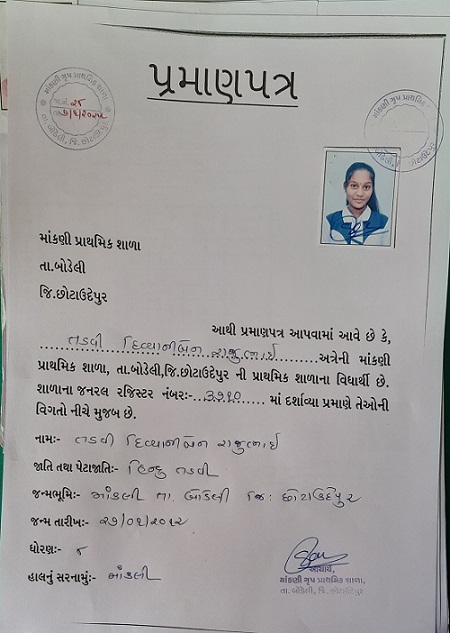 પ્રમાણપત્ર
માંકણી ગ્રુપ પ્રાથમિક શાળા
તા. બોડેલી, જિ. છોટાઉદેપુર
માંકણી પ્રાથમિક શાળા
તા.બોડેલી
જિ.છોટાઉદેપુર
આથી પ્રમાણપત્ર આપવામાં આવે છે કે,
તડવી દિવ્યાનીબેન રાજુભાઈ અત્રેની માંકણી
પ્રાથમિક શાળા, તા.બોડેલી,જિ.છોટાઉદેપુર ની પ્રાથમિક શાળાના વિધાર્થી છે.
શાળાના જનરલ રજિસ્ટર નંબરઃ- ૩૭૧૦ માં દર્શાવ્યા પ્રમાણે તેઓની
વિગતો નીચે મુજબ છે.
નામઃ- તડવી દિવ્યાનીબેન રાજુભાઈ
જાતિ તથા પેટાજાતિઃ- હિન્દુ તડવી
જન્મભૂમિઃ- માંકણી તા. બોડેલી જિઃ છોટાઉદેપુર
જન્મ તારીખઃ- ૨૭/૦૬/૨૦૧૨
ધોરણઃ- ૮
હાલનું સરનામુંઃ- માંકણી
આચાર્ય,
માંકણી ગ્રુપ પ્રાથમિક શાળા,
તા. બોડેલી, જિ. છોટાઉદેપુર